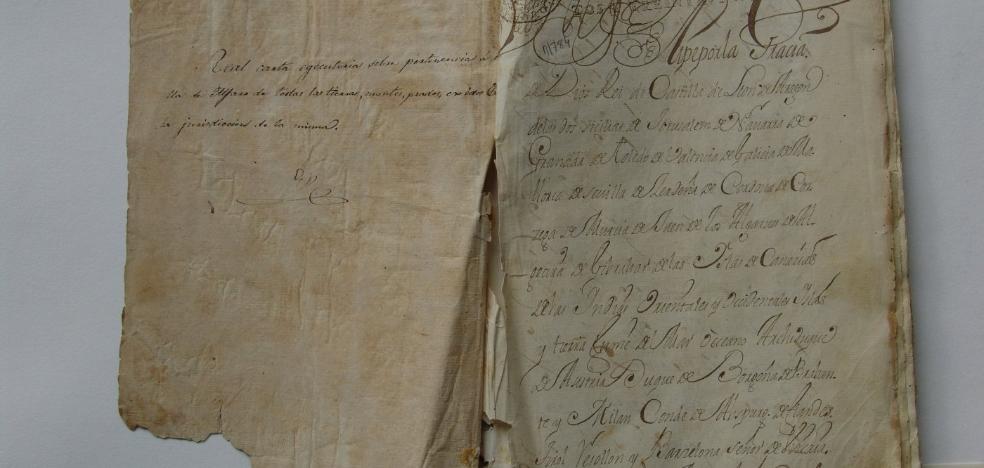 Real carta egecutoria sobre pertinencia á
lla de Alfaro de todas las tierras, montes, prados, exidos
la jurisdiccion de la misma.
1784
Felipe por la Gracia
de Dios Rei de Castilla de Leon de Aragon
de las dos Sicilias de Jerusalem de Navarra de
Granada de Toledo de Valencia de Galicia de Ma
llorca de Sevilla de Serdeña de Cordova de Cor
zega de Murcia de Jaen de los Algarves de Al
gecira de Gibraltar de las Islas de Canarias
de las Indias Orientales y Occidentales Islas
y tierra firme del Mar Occeano Archiduque
de Austria Duque de Borgoña de Braban
te y Milan Conde de Abspurg de Flandes
Tirol Rosellon y Barcelona Señor de Vizcaia